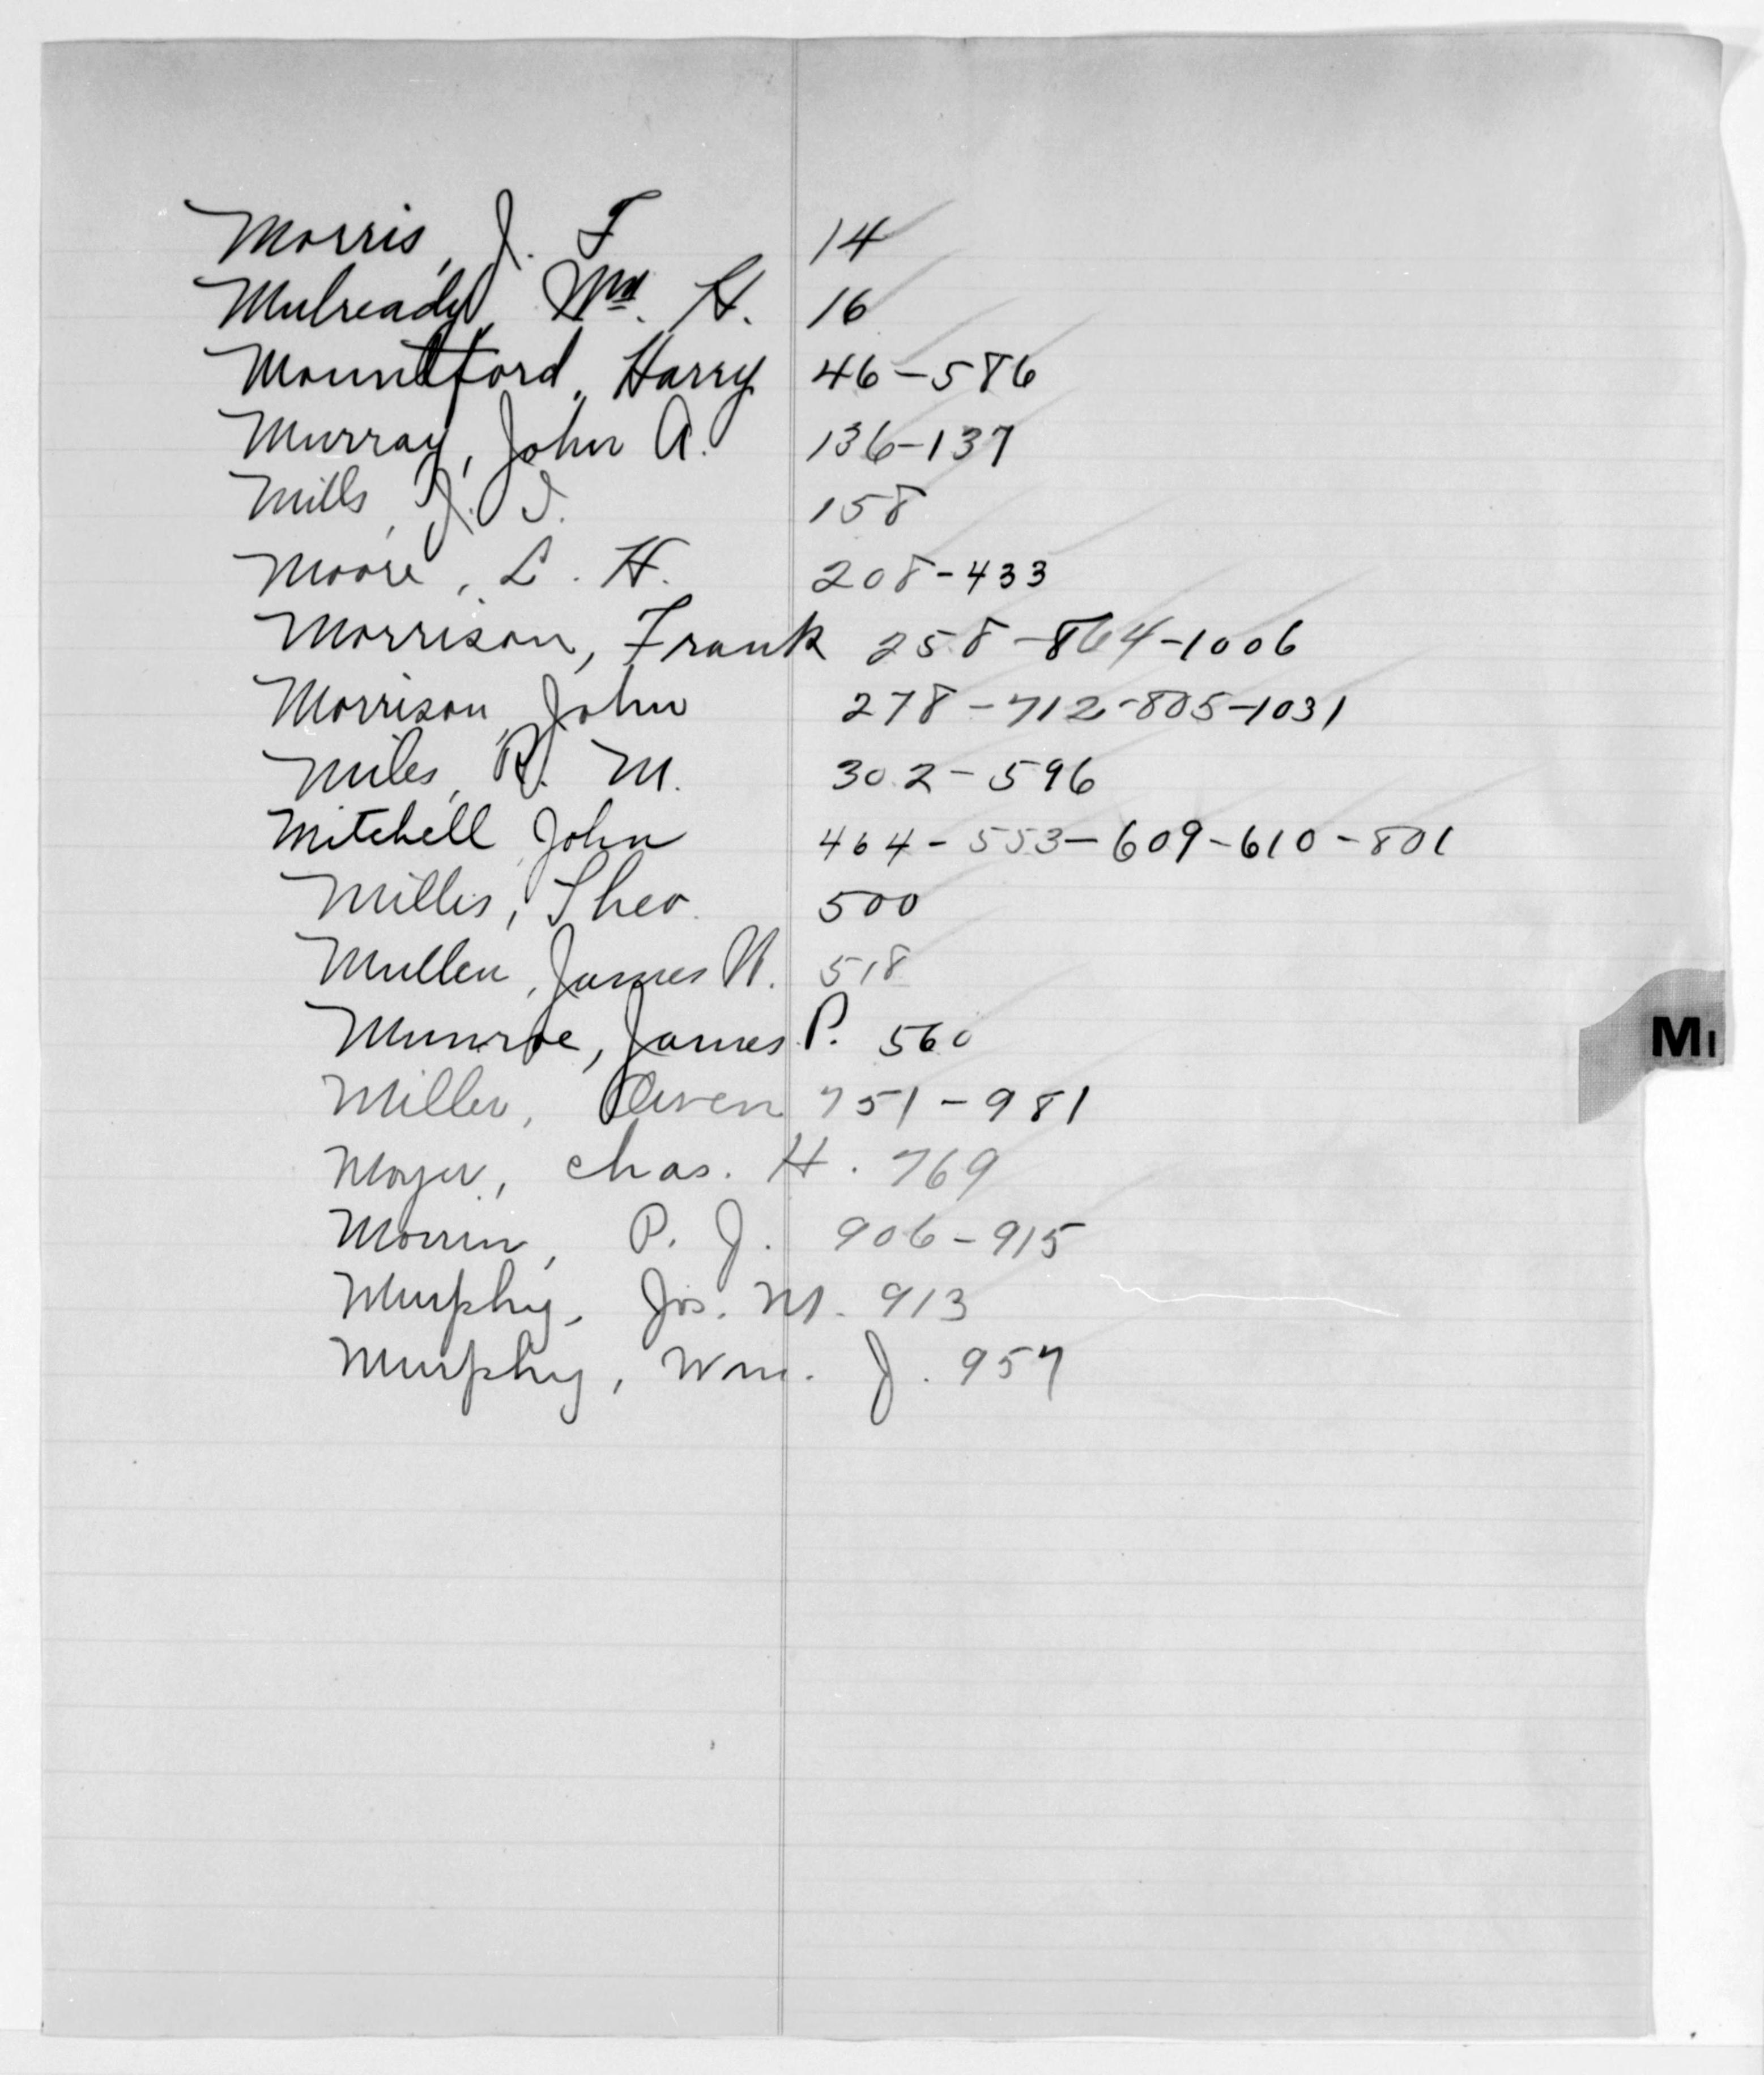 Morris, J. F 14
Mulready, Wm. H. 16
Mountford, Harry 46-586
Murray, John A. 136-137
Mills, J. I. 158
Moore, L. H. 208-433
Morrison, Frank 258-864-1006
Morrison, John 278-712-805-1031
Miles, R. M. 302-596
Mitchell, John 464-553-609-610-801
Millis, Theo. 500
Mullen, James H. 518
Munroe, James P. 560
Miller, Owen 751-981
Moyer, Chas. H. 769
Morrin, P. J. 906-915
Murphy, Jos. M. 913
Murphy, Wm. J. 957
MI